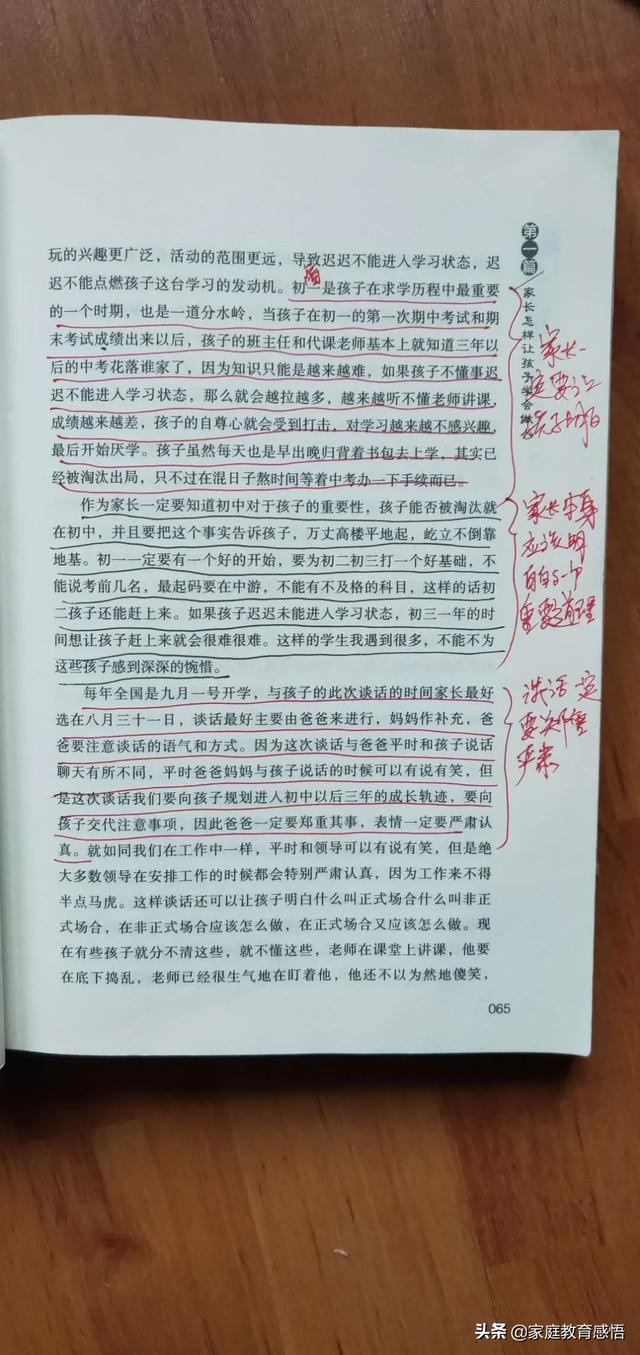 玩的兴趣更广泛，活动的范围更远，导致迟迟不能进入学习状态，迟
迟不能点燃孩子这台学习的发动机。初一是孩子在求学历程中最重要
的一个时期，也是一道分水岭，当孩子在初一的第一次期中考试和期
末考试成绩出来以后，孩子的班主任和代课老师基本上就知道三年以
后的中考花落谁家了，因为知识只能是越来越难，如果孩子不懂事迟
迟不能进入学习状态，那么就会越拉越多，越来越听不懂老师讲课，
成绩越来越差，孩子的自尊心就会受到打击，对学习越来越不感兴趣，
最后开始厌学。孩子虽然每天也是早出晚归背着书包去上学，其实已
经被淘汰出局，只不过在混日子熬时间等着中考办一下手续而已。
作为家长一定要知道初中对于孩子的重要性，孩子能否被淘汰就
在初中，并且要把这个事实告诉孩子，万丈高楼平地起，屹立不倒靠
地基。初一一定要有一个好的开始，要为初二初三打一个好基础，不
能说考前几名，最起码要在中游，不能有不及格的科目，这样的话初
二孩子还能赶上来。如果孩子迟迟未能进入学习状态，初三一年的时
间想让孩子赶上来就会很难很难。这样的学生我遇到很多，不能不为
这些孩子感到深深的惋惜。
每年全国是九月一号开学，与孩子的此次谈话的时间家长最好
选在八月三十一日，谈话最好主要由爸爸来进行，妈妈作补充，爸
爸要注意谈话的语气和方式。因为这次谈话与爸爸平时和孩子说话
聊天有所不同，平时爸爸妈妈与孩子说话的时候可以有说有笑，但
是这次谈话我们要向孩子规划进入初中以后三年的成长轨迹，要向
孩子交代注意事项，因此爸爸一定要郑重其事，表情一定要严肃认
真。就如同我们在工作中一样，平时和领导可以有说有笑，但是绝
大多数领导在安排工作的时候都会特别严肃认真，因为工作来不得
半点马虎。这样谈话还可以让孩子明白什么叫正式场合什么叫非正
式场合，在非正式场合应该怎么做，在正式场合又应该怎么做。现
在有些孩子就分不清这些，就不懂这些，老师在课堂上讲课，他要
在底下捣乱，老师已经很生气地在盯着他，他还不以为然地傻笑，
065
第一篇
家长怎样让孩子学会做
家长一
定要让
孩子明白
家长本身
应该明
白的一个
重要道理
谈话一定
要
严肃
头条 @家庭教育感悟